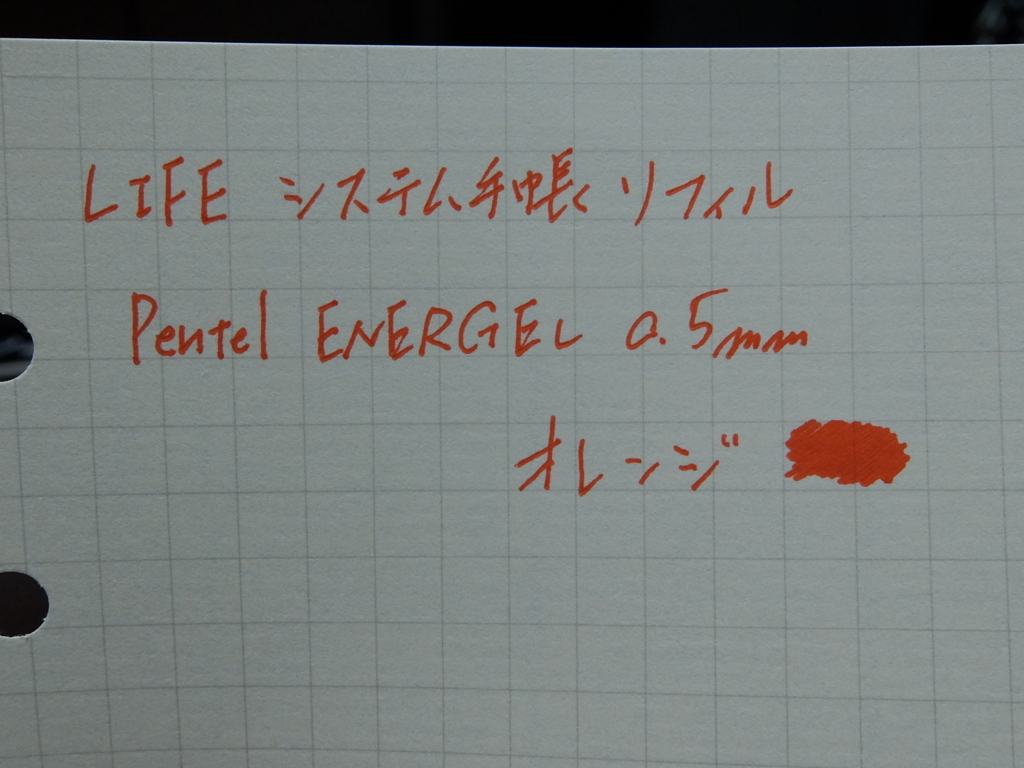 LIFE システム手帳 リフィル
Pentel ENERGEL 0.5mm
オレンジ